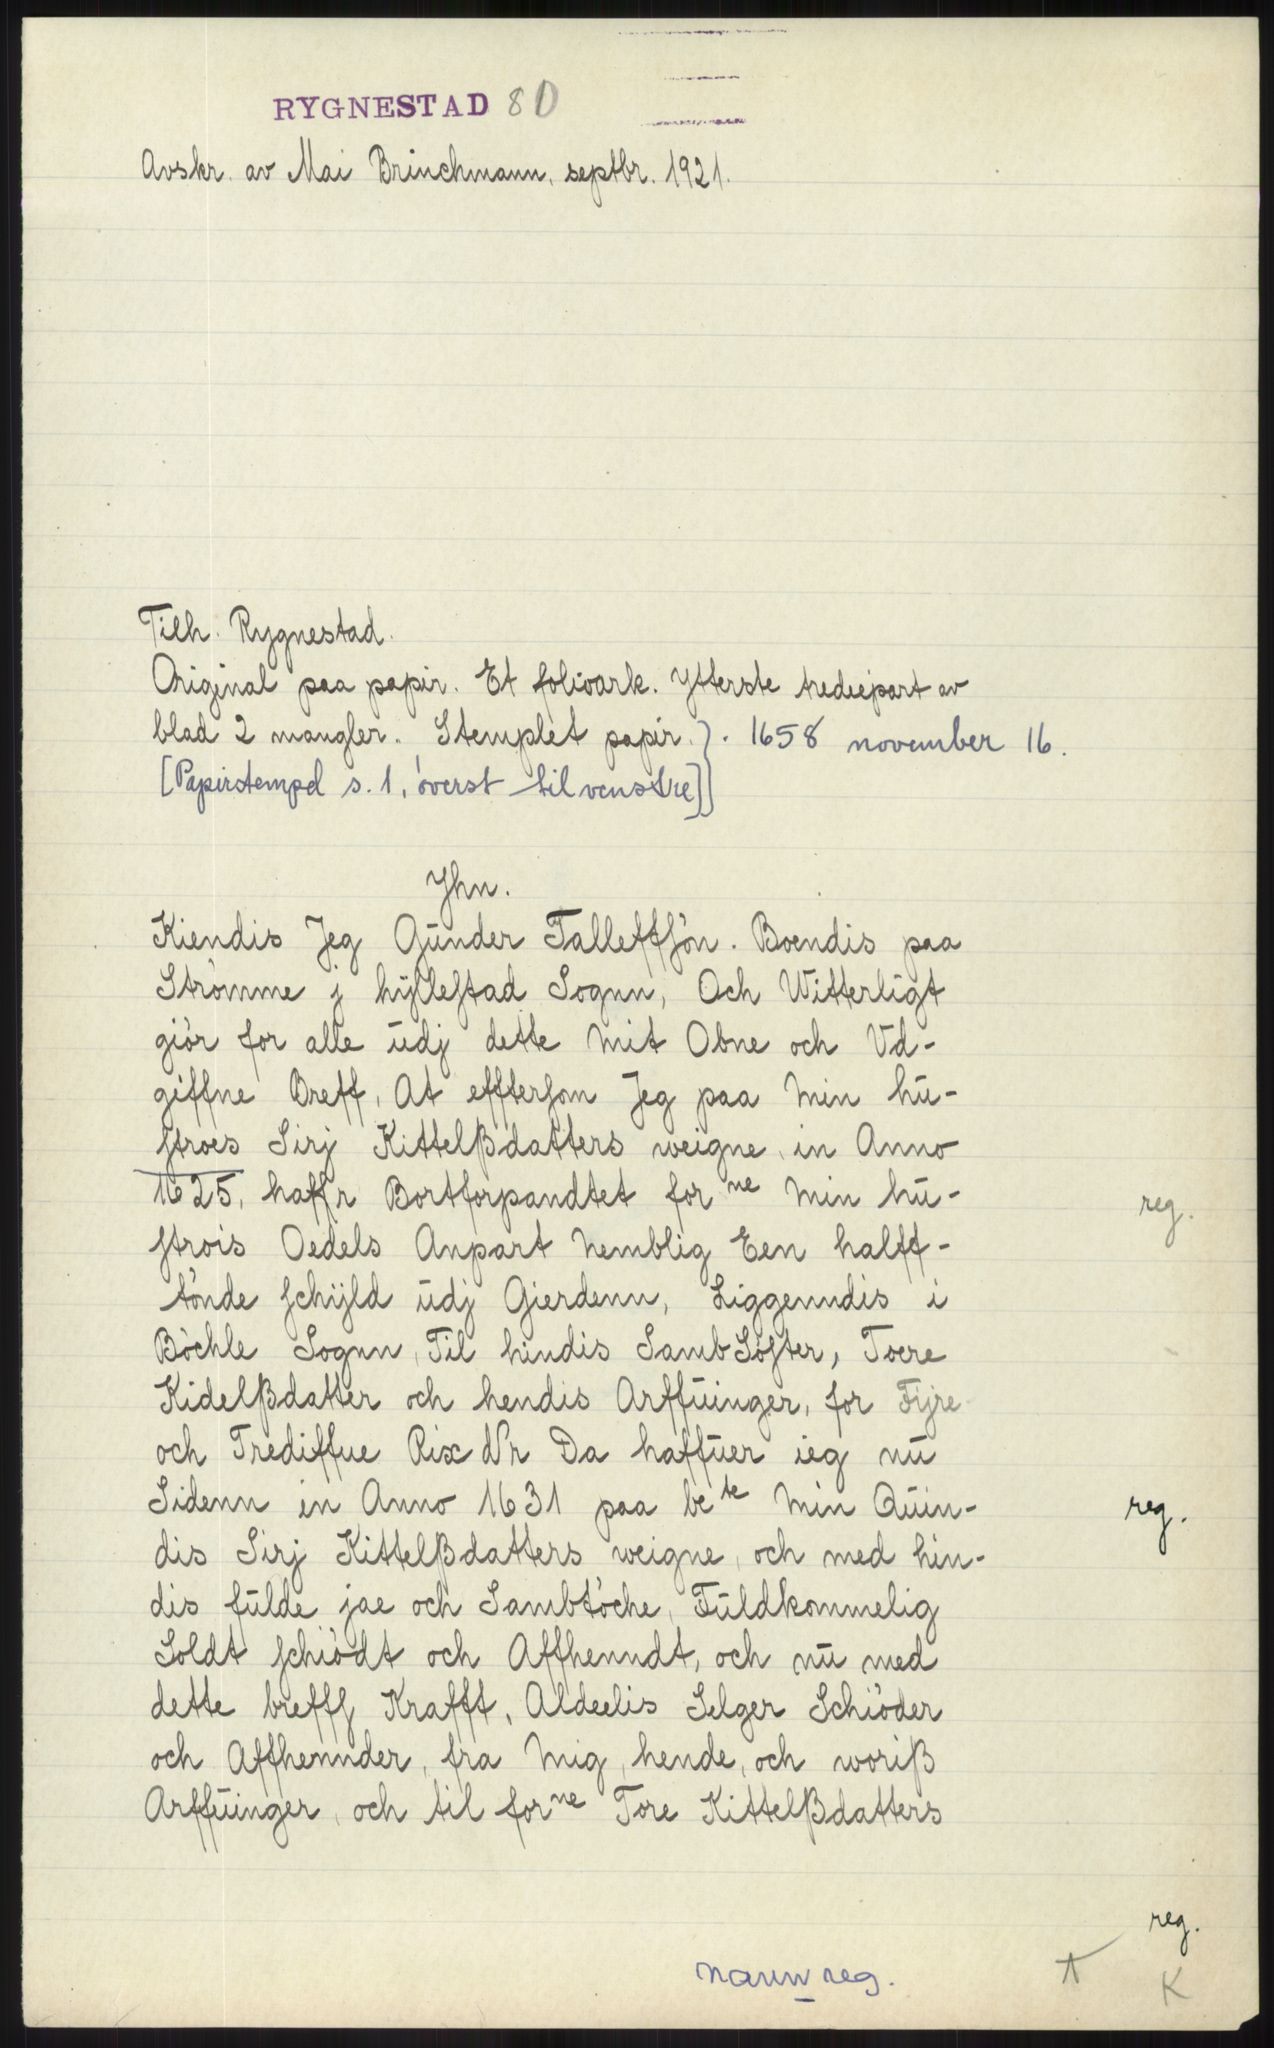 RYGNESTAD 80
Avskr. av Mai Brinchmann, septbr. 1921.
Tilh. Rygnestad.
Original paa papir. Et folioark. Ytterste trediepart av
blad 2 mangler. Stemplet papir.}. 1658 november 16.
[Papirstempel s. 1, øverst til venstre]]
Yhn.
Kiendis Jeg Gunder Talleffſøn. Boendis paa
Strømme j hÿlleſtad Sognn, Och Witterligt
giør for alle udj dette Mit Obne och Vd-
giffne Breff, At effterſom Jeg paa Min hu-
ſtroes Sirj Kittelßdatters weigne, in Anno
1625, haffr Bortforpandtet for ne Min hu-
ſtrois Oedels Anpart Nemblig Een halff-
tønde ſchÿld udj Gierdenn, Liggenndis i
Bøchle Sognn, Til hindis Samb Søſter, Toere
Kidelßdatter och hendis Arffuinger, for Fÿre
och Trediffue Rix dlr Da haffuer ieg nu
Sidenn in Anno 1631 paa be te Min Quin-
dis Sirj Kittelßdatters weigne, och med hin-
dis fulde jae och Sambtøche, Fuldkommelig
Soldt ſchiødt och Affhenndt, och nu med
dette breffſ Krafft, Aldeelis Selger Schiøder
och Affhennder, fra Mig, hende, och woriß
Arffuinger, och til for ne Tore Kittelßdatters
reg.
reg.
reg.
navn reg.
K